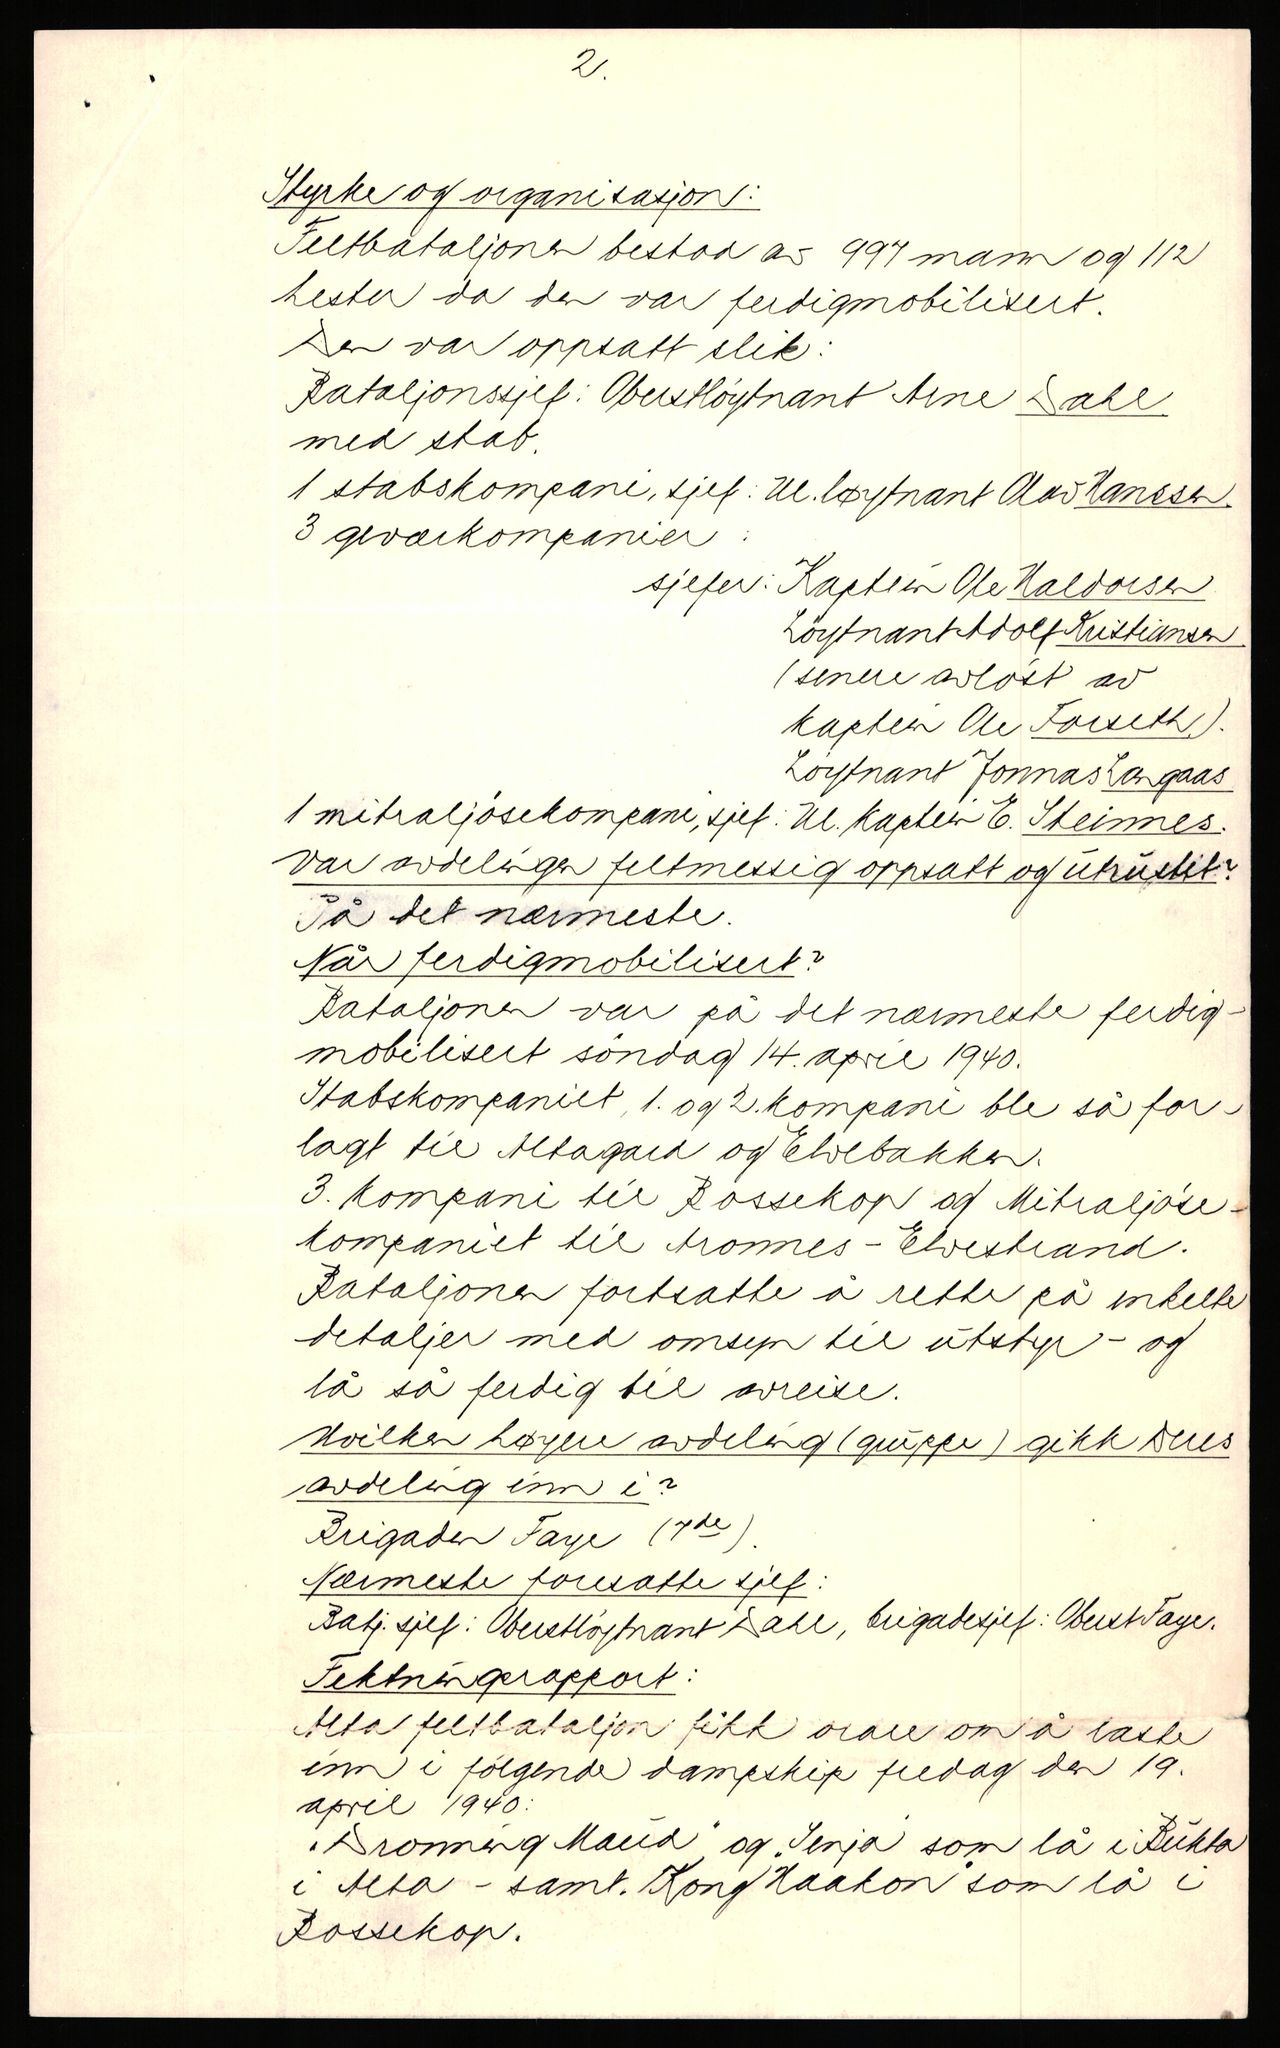 2.
Styrke og organisasjon:
Feltbataljonen bestod av 997 mann og 112
hester da den var ferdigmobilisert.
Den var oppsatt slik:
Bataljonssjef: Oberstløytnant Arne Dahl
med stab.
1 stabskompani, sjef: Ul. løytnant Olav Hanssen.
3 geværkompanier:
sjefer: Kaptein Ole Haldorsen
Løytnant Adolf Kristiansen
(senere avløst av
kaptein Ole Forseth).
Løytnant Jonnas Langaas
1 mitraljøsekompani, sjef: Ul. kaptein E. Steinnes.
Var avdelingen feltmessig oppsatt og utrustet?
På det nærmeste.
Når ferdigmobilisert?
Bataljonen var på det nærmeste ferdig-
mobilisert söndag 14. april 1940.
Stabskompaniet, 1. og 2. kompani ble så for-
lagt til Altagard og Elvebakken.
3. kompani til Bossekop og Mitraljöse-
kompaniet til Aronnes - Elvestrand.
Bataljonen fortsatte å rette på enkelte
detaljer med omsyn til utstyr - og
lå så ferdig til avreise.
Hvilken høyere avdeling (gruppe) gikk Deres
avdeling inn i?
Brigaden Faye (7de).
Nærmeste foresatte sjef:
Batj. sjef: Oberstløytnant Dahl, brigadesjef: Oberst Faye.
Fektningsrapport:
Alta feltbataljon fikk ordre om å laste
inn i følgende dampskip fredag den 19.
april 1940:
"Dronning Maud" og "Senja" som lå i Bukta
i Alta - samt "Kong Haakon" som lå i
Bossekop.